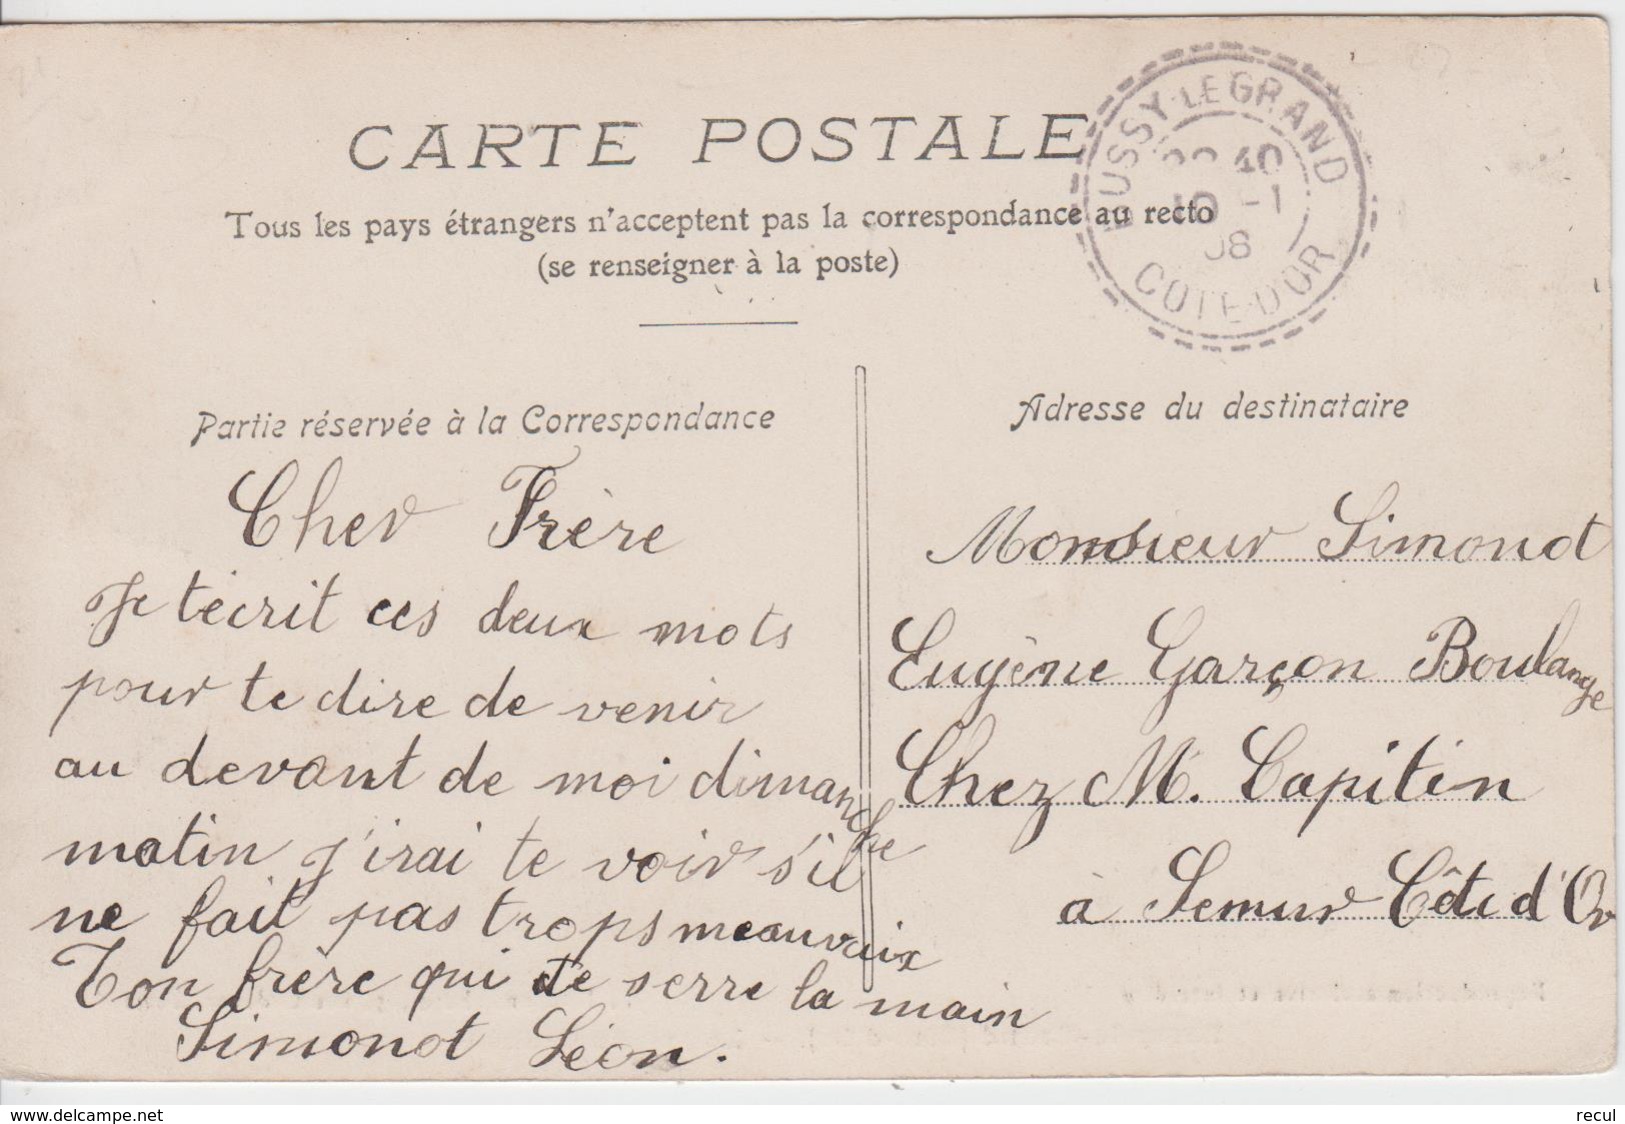 CARTE POSTALE
Tous les pays étrangers n'acceptent pas la correspondance au recto
(se renseigner à la poste)
BUSSY-LE GRAND
40
10 -1
08
COTE-D'OR
Partie réservée à la Correspondance
Cher Frère
Je t'écrit ces deux mots
pour te dire de venir
au devant de moi dimanche
matin j'irai te voir s'il
ne fait pas trops meauvaix
Ton frère qui te serre la main
Simonot Léon.
Adresse du destinataire
Monsieur Simonot
Eugène Garçon Boulange
Chez M. Capitin
à Semur Côte d'Or
www.delcampe.net
recul